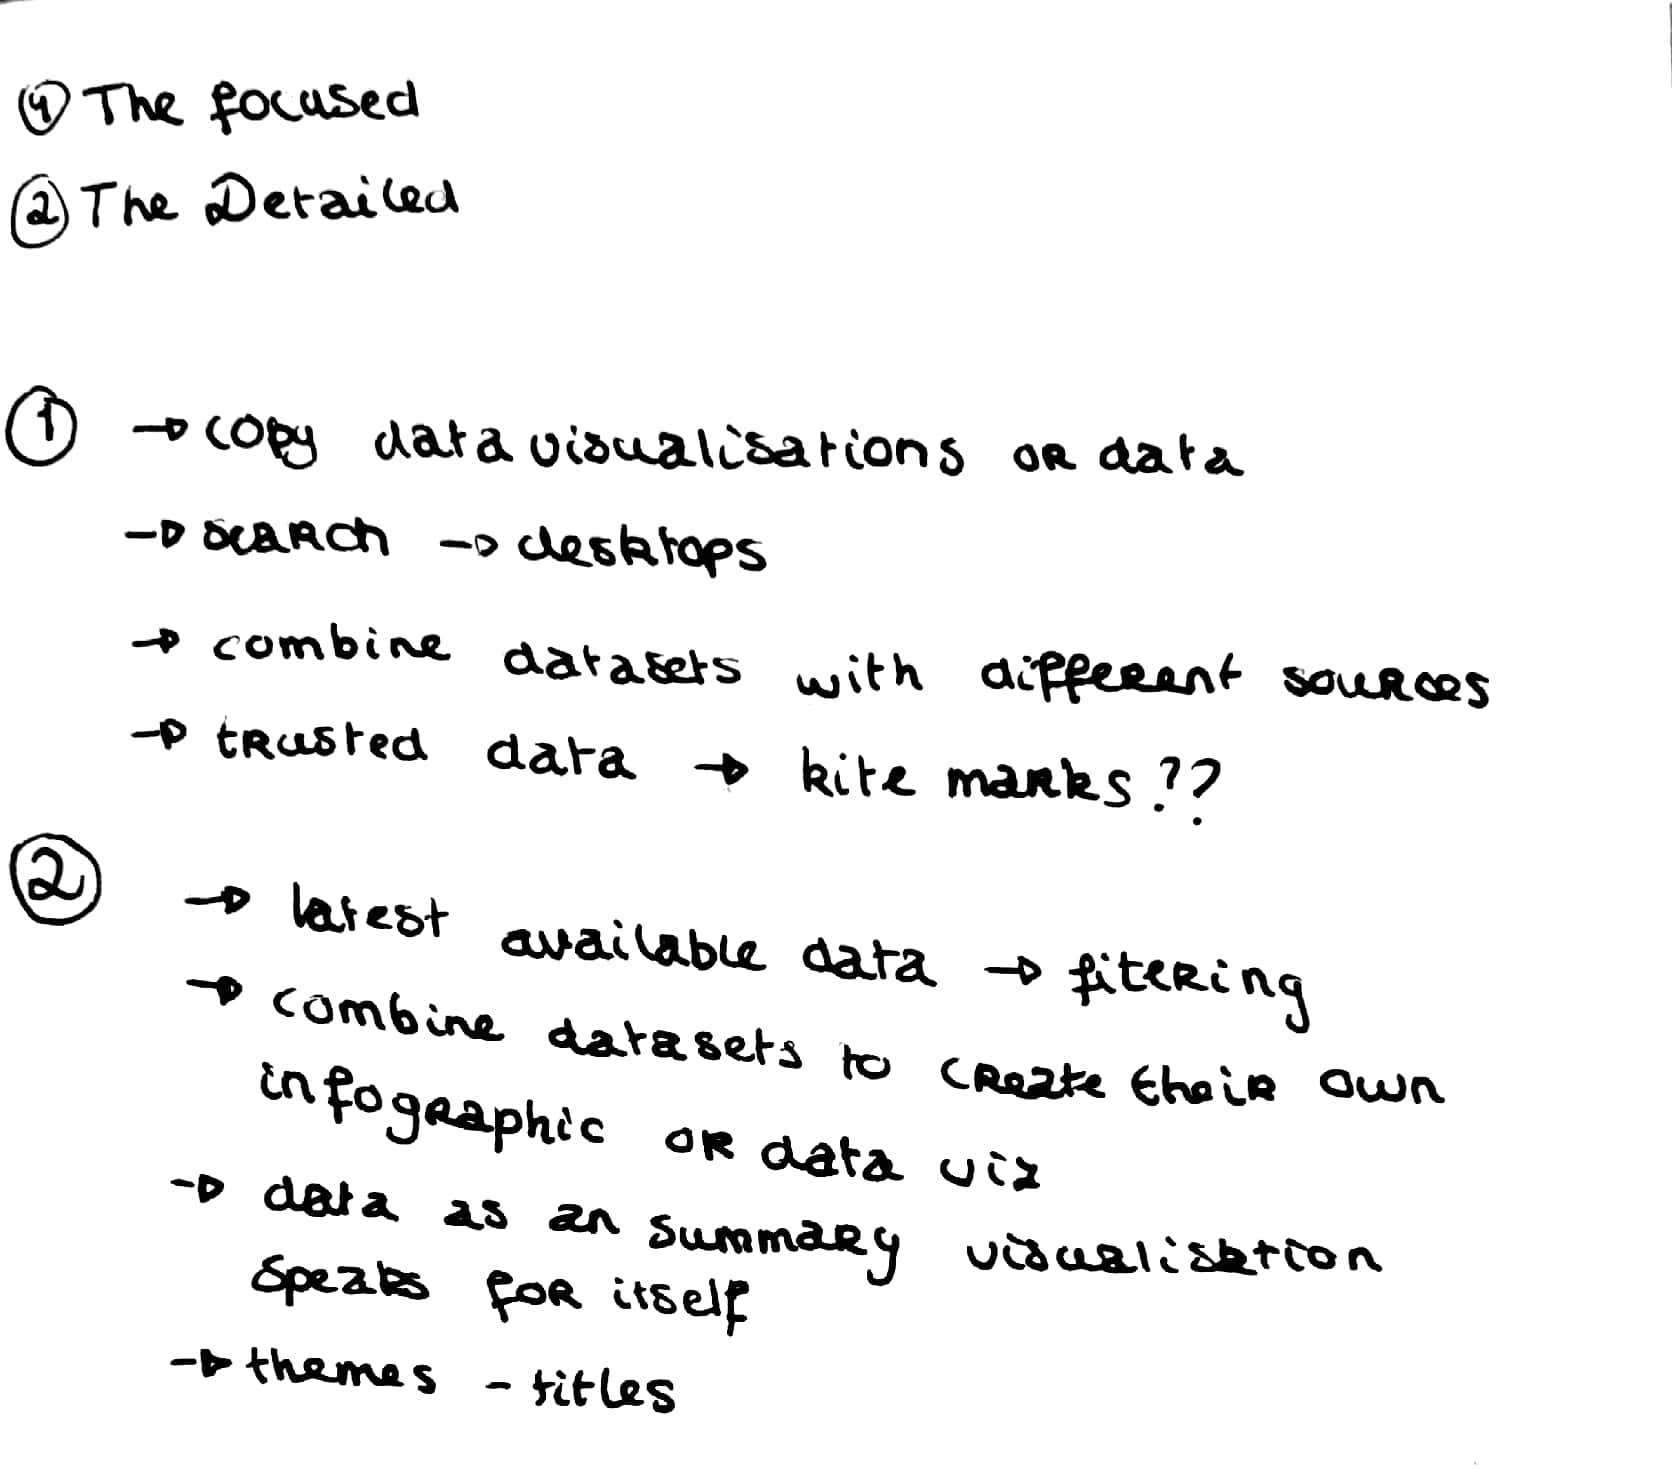 ④ The focused
② The Detailed
① → copy data visualisations or data
→ search → desktops
→ combine datasets with different sources
→ trusted data → kite marks??
② → latest available data → fitering
→ combine datasets to create their own
infographic or data viz
→ data as an summary visualisation
speaks for itself
→ themes - titles